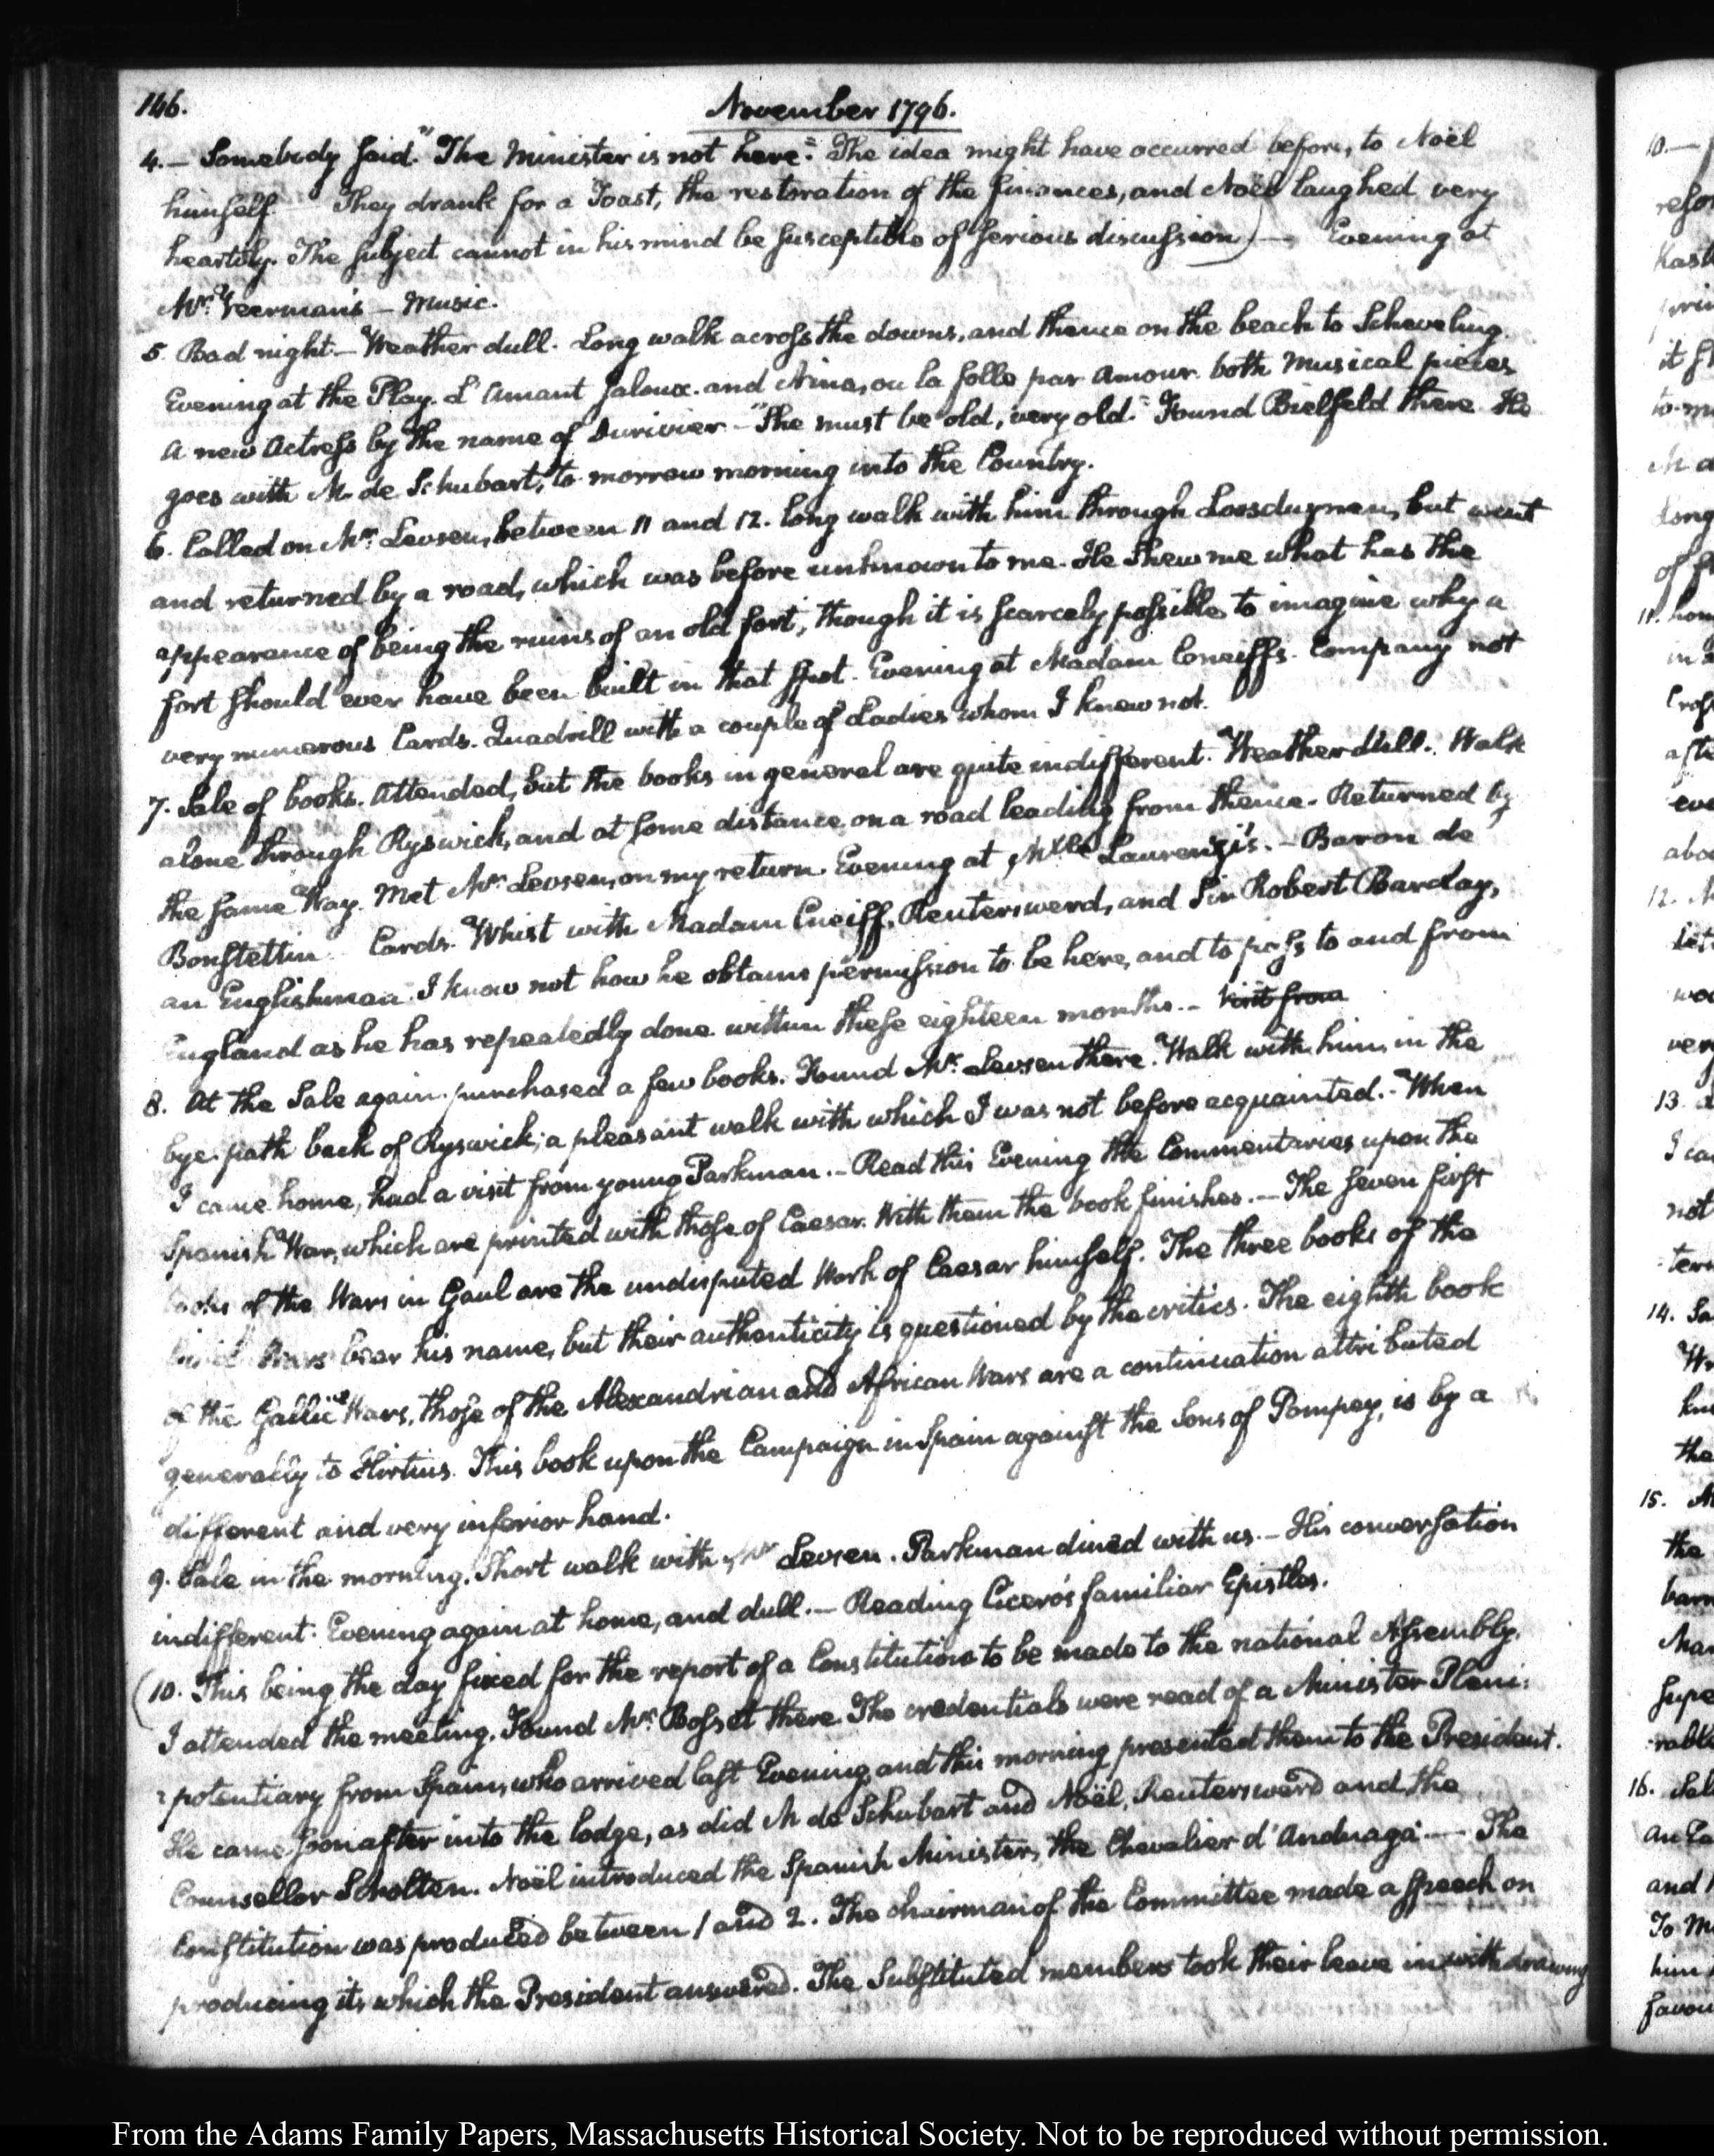 146.
November 1796.
4.— Somebody said. "The Minister is not here." The idea might have occurred before, to Noël
himself — They drank for a Toast, the restoration of the finances, and Noël laughed very
heartily. The subject cannot in his mind be susceptible of serious discussion) — Evening at
Mr. Veerman's — Music.
5. Bad night.— Weather dull. Long walk across the downs, and thence on the beach to Scheveling.
Evening at the Play. L'Amant Jaloux. and Nina, ou la folle par Amour. both Musical pieces
A new Actress by the name of Durivier — "She must be old, very old." Found Bielfeld there. He
goes with M. de Schubart, to morrow morning into the Country.
6. Called on Mr. Levsen, between 11 and 12. long walk with him through Loosduynen, but went
and returned by a road, which was before unknown to me. He shew me what has the
appearance of being the ruins of an old fort, though it is scarcely possible to imagine why a
fort should ever have been built in that spot. Evening at Madam Coneiffs. Company not
very numerous Cards. Quadrill with a couple of Ladies whom I knew not.
7. Sale of books. Attended, but the books in general are quite indifferent. Weather dull. Walk
alone through Ryswick, and at some distance on a road leading from thence. Returned by
the same Way. Met Mr. Levsen, on my return. Evening at Mlle Laurenzi's. — Baron de
Bonstettin. Cards. Whist with Madam Cneiff, Reutersward, and Sir Robert Barclay,
an Englishman. I know not how he obtains permission to be here, and to pass to and from
England as he has repeatedly done within these eighteen months. — Visit from
8. At the Sale again. purchased a few books. Found Mr. Levsen there. Walk with him, in the
bye-path back of Ryswick; a pleasant walk with which I was not before acquainted. — When
I came home, had a visit from young Parkman. — Read this Evening the Commentaries upon the
Spanish War, which are printed with those of Caesar. With them the book finishes. — The seven first
books of the Wars in Gaul are the undisputed Work of Caesar himself. The three books of the
Civil Wars bear his name, but their authenticity is questioned by the critics. The eighth book
of the Gallic Wars, those of the Alexandrian and African Wars are a continuation attributed
generally to Hirtius. This book upon the Campaign in Spain against the Sons of Pompey, is by a
different and very inferior hand.
9. Sale in the morning. Short walk with Mr Levsen. Parkman dined with us. — His conversation
indifferent. Evening again at home, and dull. — Reading Cicero's familiar Epistles.
(10. This being the day fixed for the report of a Constitution to be made to the national Assembly,
I attended the meeting. Found Mr. Bosset there. The credentials were read of a Minister Pleni:
:potentiary from Spain, who arrived last Evening, and this morning presented them to the President.
He came soon after into the lodge, as did M de Schubart and Noël, Reutersward and the
Counsellor Scholten. Noël introduced the Spanish Minister, the Chevalier d'Anduaga. — The
Constitution was produced between 1 and 2. The chairman of the Committee made a speech on
producing it, which the President answered. The Substituted members took their leave in withdrawing
From the Adams Family Papers, Massachusetts Historical Society. Not to be reproduced without permission.